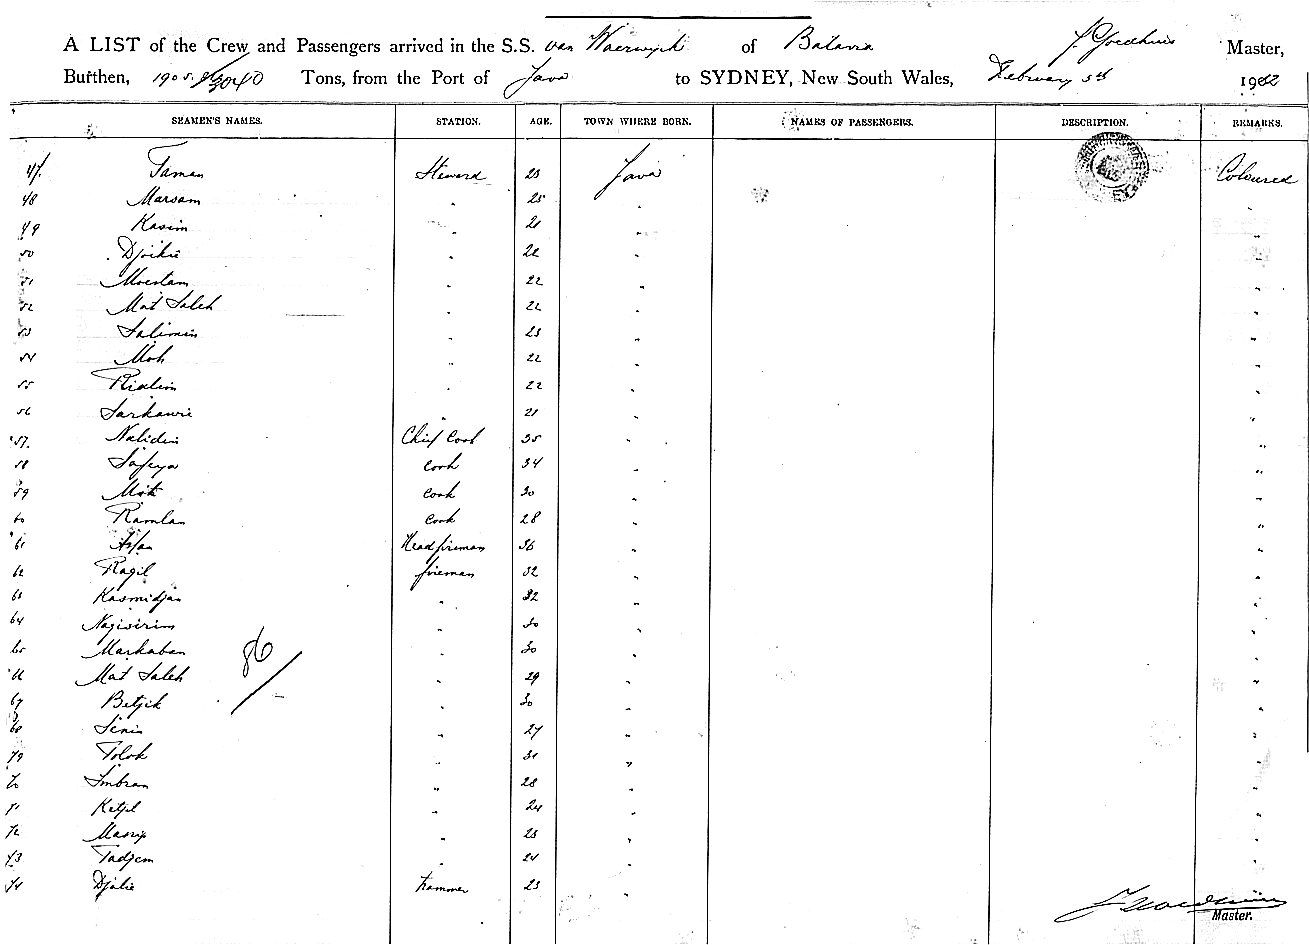 A LIST of the Crew and Passengers arrived in the S.S. van Waerwyck of Batavia J. Goedhuis Master,
Burthen, 1905 Tons, from the Port of Java to SYDNEY, New South Wales, February 5th 1912
SEAMEN'S NAMES. STATION. AGE. TOWN WHERE BORN. NAMES OF PASSENGERS. DESCRIPTION. REMARKS.
47. Taman Steward 23 Java Coloured
48 Marsam " 25 " "
49 Kasim " 21 " "
50 Djoikie " 22 " "
51 Moestam " 22 " "
52 Mat Saleh " 22 " "
53 Salimin " 23 " "
54 Moh " 22 " "
55 " 22 " "
56 Sarkawie " 21 " "
57. Nalidin Chief Cook 35 " "
58 Cook 34 " "
59 Cook 30 " "
60 Ramlan Cook 28 " "
61 Head fireman 36 " "
62 Ragil fireman 32 " "
63 Kasmidjan " 32 " "
64 " 30 " "
65 Markaban " 30 " "
66 Mat Saleh " 29 " "
86
67 Betjik " 30 " "
68 Senin " 27 " "
69 Tolok " 31 " "
70 Imbran " 28 " "
71 Ketjil " 24 " "
72 " 23 " "
73 Tadjem " 24 " "
74 Djalie trammer 23 " "
Master.